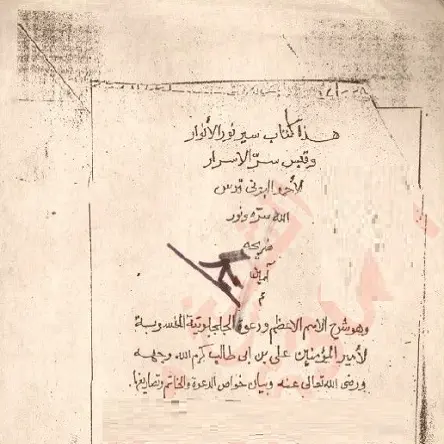 هذا كتاب سير نور الأنوار
وقبس سرّ الاسرار
لأحمد البونى قدس
الله سرّه ونور
ضريحه
آمين
م
وهو شرح الاسم الاعظم ودعوة الجلجلوتية المنسوبة
لأمير المؤمنين على بن ابى طالب كرّم الله وجهه
ورضى الله تعالى عنه وبيان خواص الدعوة والخاتم وتصاريفها